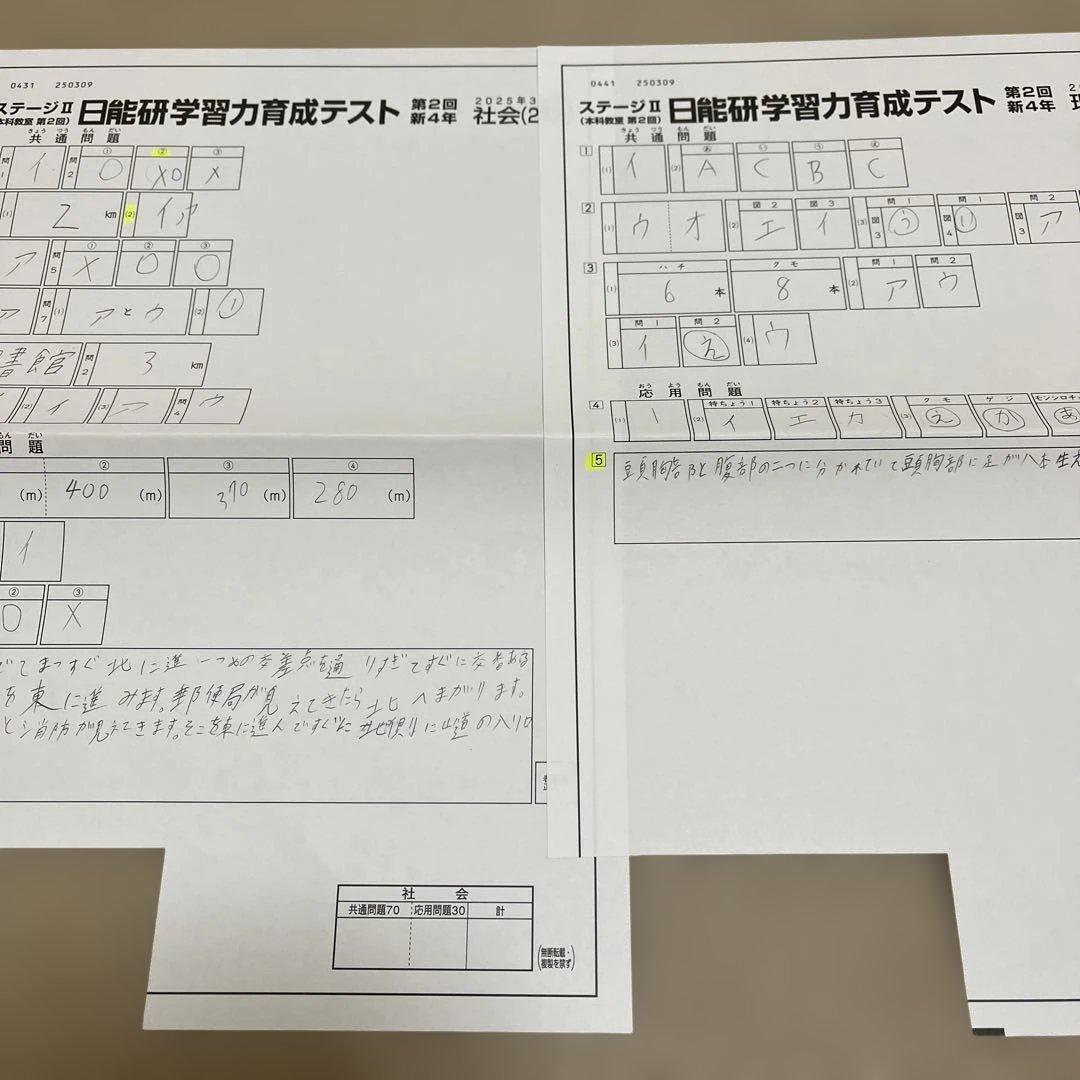 0431 250309
ステージⅡ
(本科教室 第2回)
日能研学習力育成テスト
第2回
新4年
2025年3
社会(2
きょう つう もん だい
共通問題
1 イ 問2 ① ○ ② ×○ ③ ×
(1) 2 km (2)
ア 問5 ① × ② ○ ③ ○
ア 問7 (1) アとウ (2) ①
書館 問2 3 km
(2) イ (3) 問4 ウ
もん だい
問題
(m) ② 400 (m) ③ 370 (m) ④ 280
イ
② ○ ③ ×
てまっすぐ北に進 一つめの交差点を通りすぎてすぐに交番ある
を東に進みます。郵便局が見えてきたら北へまがります。
と消防が見えてきます。そこを東に進んですぐに北側に山道の入り口
社会
共通問題70 応用問題30 計
(無断転載・
複製を禁ず)
0441 250309
ステージⅡ
(本科教室 第2回)
日能研学習力育成テスト
第2回
新4年
きょう つう もん だい
共通問題
1 (1) イ (2) あ A い C う B え C
2 (1) ウ オ (2) 図2 エ 図3 イ (3) 問1 図3 う 問1 図4 い 問2 図3 ア
3 (1) ハチ 6 本 クモ 8 本 (2) 問1 ア 問2 ウ
(3) 問1 イ 問2 え (4) ウ
おう よう もん だい
応用問題
4 (1) (2) 特ちょう1 イ 特ちょう2 エ 特ちょう3 カ (3) クモ え ゲジ か モンシロチョ あ
5 頭胸部と腹部の二つに分かれていて頭胸部に足が八本生え